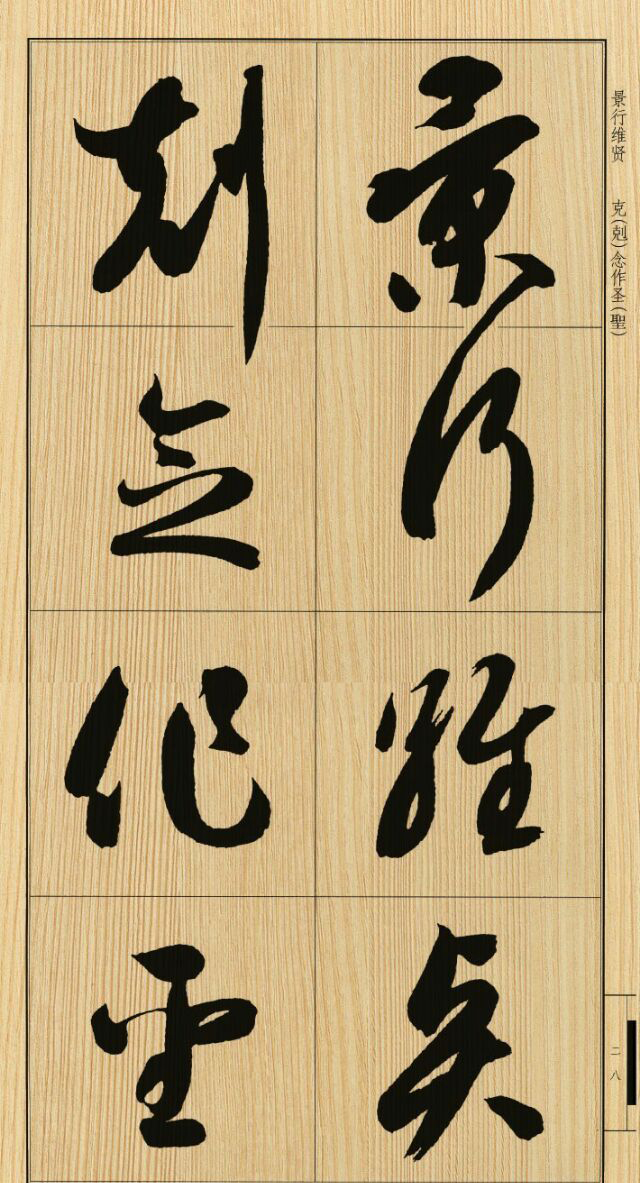 景行维贤 克(剋)念作圣(聖)
景行維賢
剋念作聖
二八